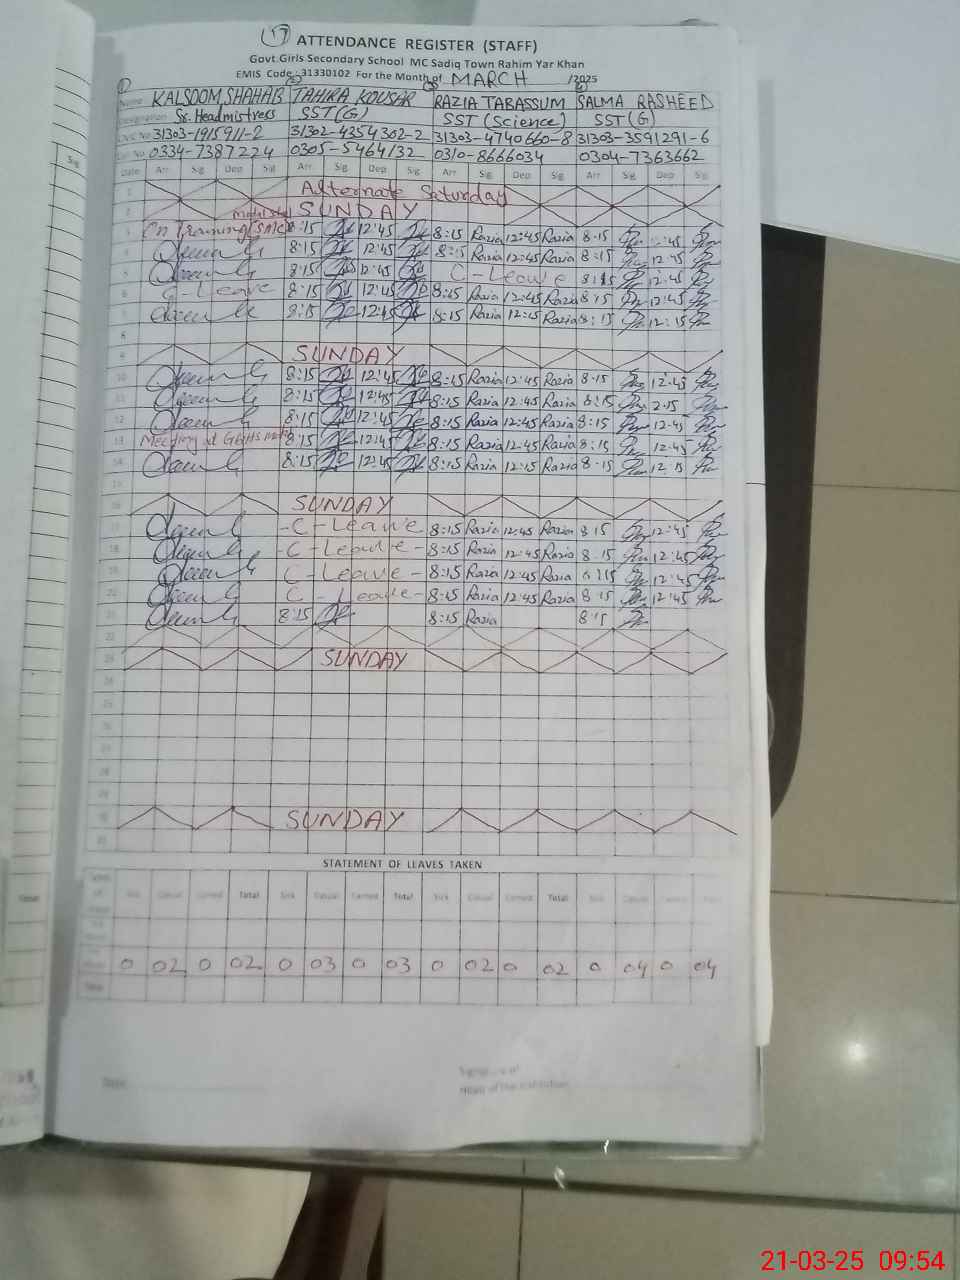 17 ATTENDANCE REGISTER (STAFF)
Govt.Girls Secondary School MC Sadiq Town Rahim Yar Khan
EMIS Code : 31330102 For the Month of MARCH /2025
Name KALSOOM SHAHAB TAHIRA KOUSAR RAZIA TABASSUM SALMA RASHEED
Designation Sr. Headmistress SST(G) SST (Science) SST(G)
CNIC No 31303-1915911-2 31302-4354302-2 31303-4740660-8 31303-3591291-6
0334-7387224 0305-5464132 0310-8666034 0304-7363662
Date Arr Sig Dep Sig Arr Sig Dep Sig Arr Sig Dep Sig Arr Sig Dep Sig
1 Alternate Saturday
2 SUNDAY
3 On Training 8:15 12:45 8:15 Razia 12:45 Razia 8:15 12:45
4 8:15 12:45 8:15 Razia 12:45 Razia 8:15 12:45
5 8:15 12:45 C-Leave 8:15 12:45
6 C-Leave 8:15 12:45 8:15 Razia 12:45 Razia 8:15 12:45
7 8:15 12:15 8:15 Razia 12:15 Razia 8:15 12:15
8
9 SUNDAY
10 8:15 12:45 8:15 Razia 12:45 Razia 8:15 12:45
11 8:15 12:45 8:15 Razia 12:45 Razia 8:15
12 8:15 12:45 8:15 Razia 12:45 Razia 8:15 12:45
13 Meeting at 8:15 12:45 8:15 Razia 12:45 Razia 8:15 12:45
14 8:15 12:45 8:15 Razia 12:15 Razia 8:15 12:15
15
16 SUNDAY
17 -C-Leave- 8:15 Razia 12:45 Razia 8:15 12:45
18 -C-Leave- 8:15 Razia 12:45 Razia 8:15 12:45
19 C-Leave- 8:15 Razia 12:45 Razia 8:15 12:45
C-Leave- 8:15 Razia 12:45 Razia 8:15 12:45
21 8:15 8:15 Razia 8:15
22
23 SUNDAY
24
25
26
27
28
29
30 SUNDAY
31
STATEMENT OF LEAVES TAKEN
Sick Casual Earned Total Sick Casual Earned Total Sick Casual Earned Total Sick Casual Earned
0 02 0 02 0 03 0 03 0 02 0 02 0 04 0 04
Total
Date
Signature of
Head of the Institution
21-03-25 09:54